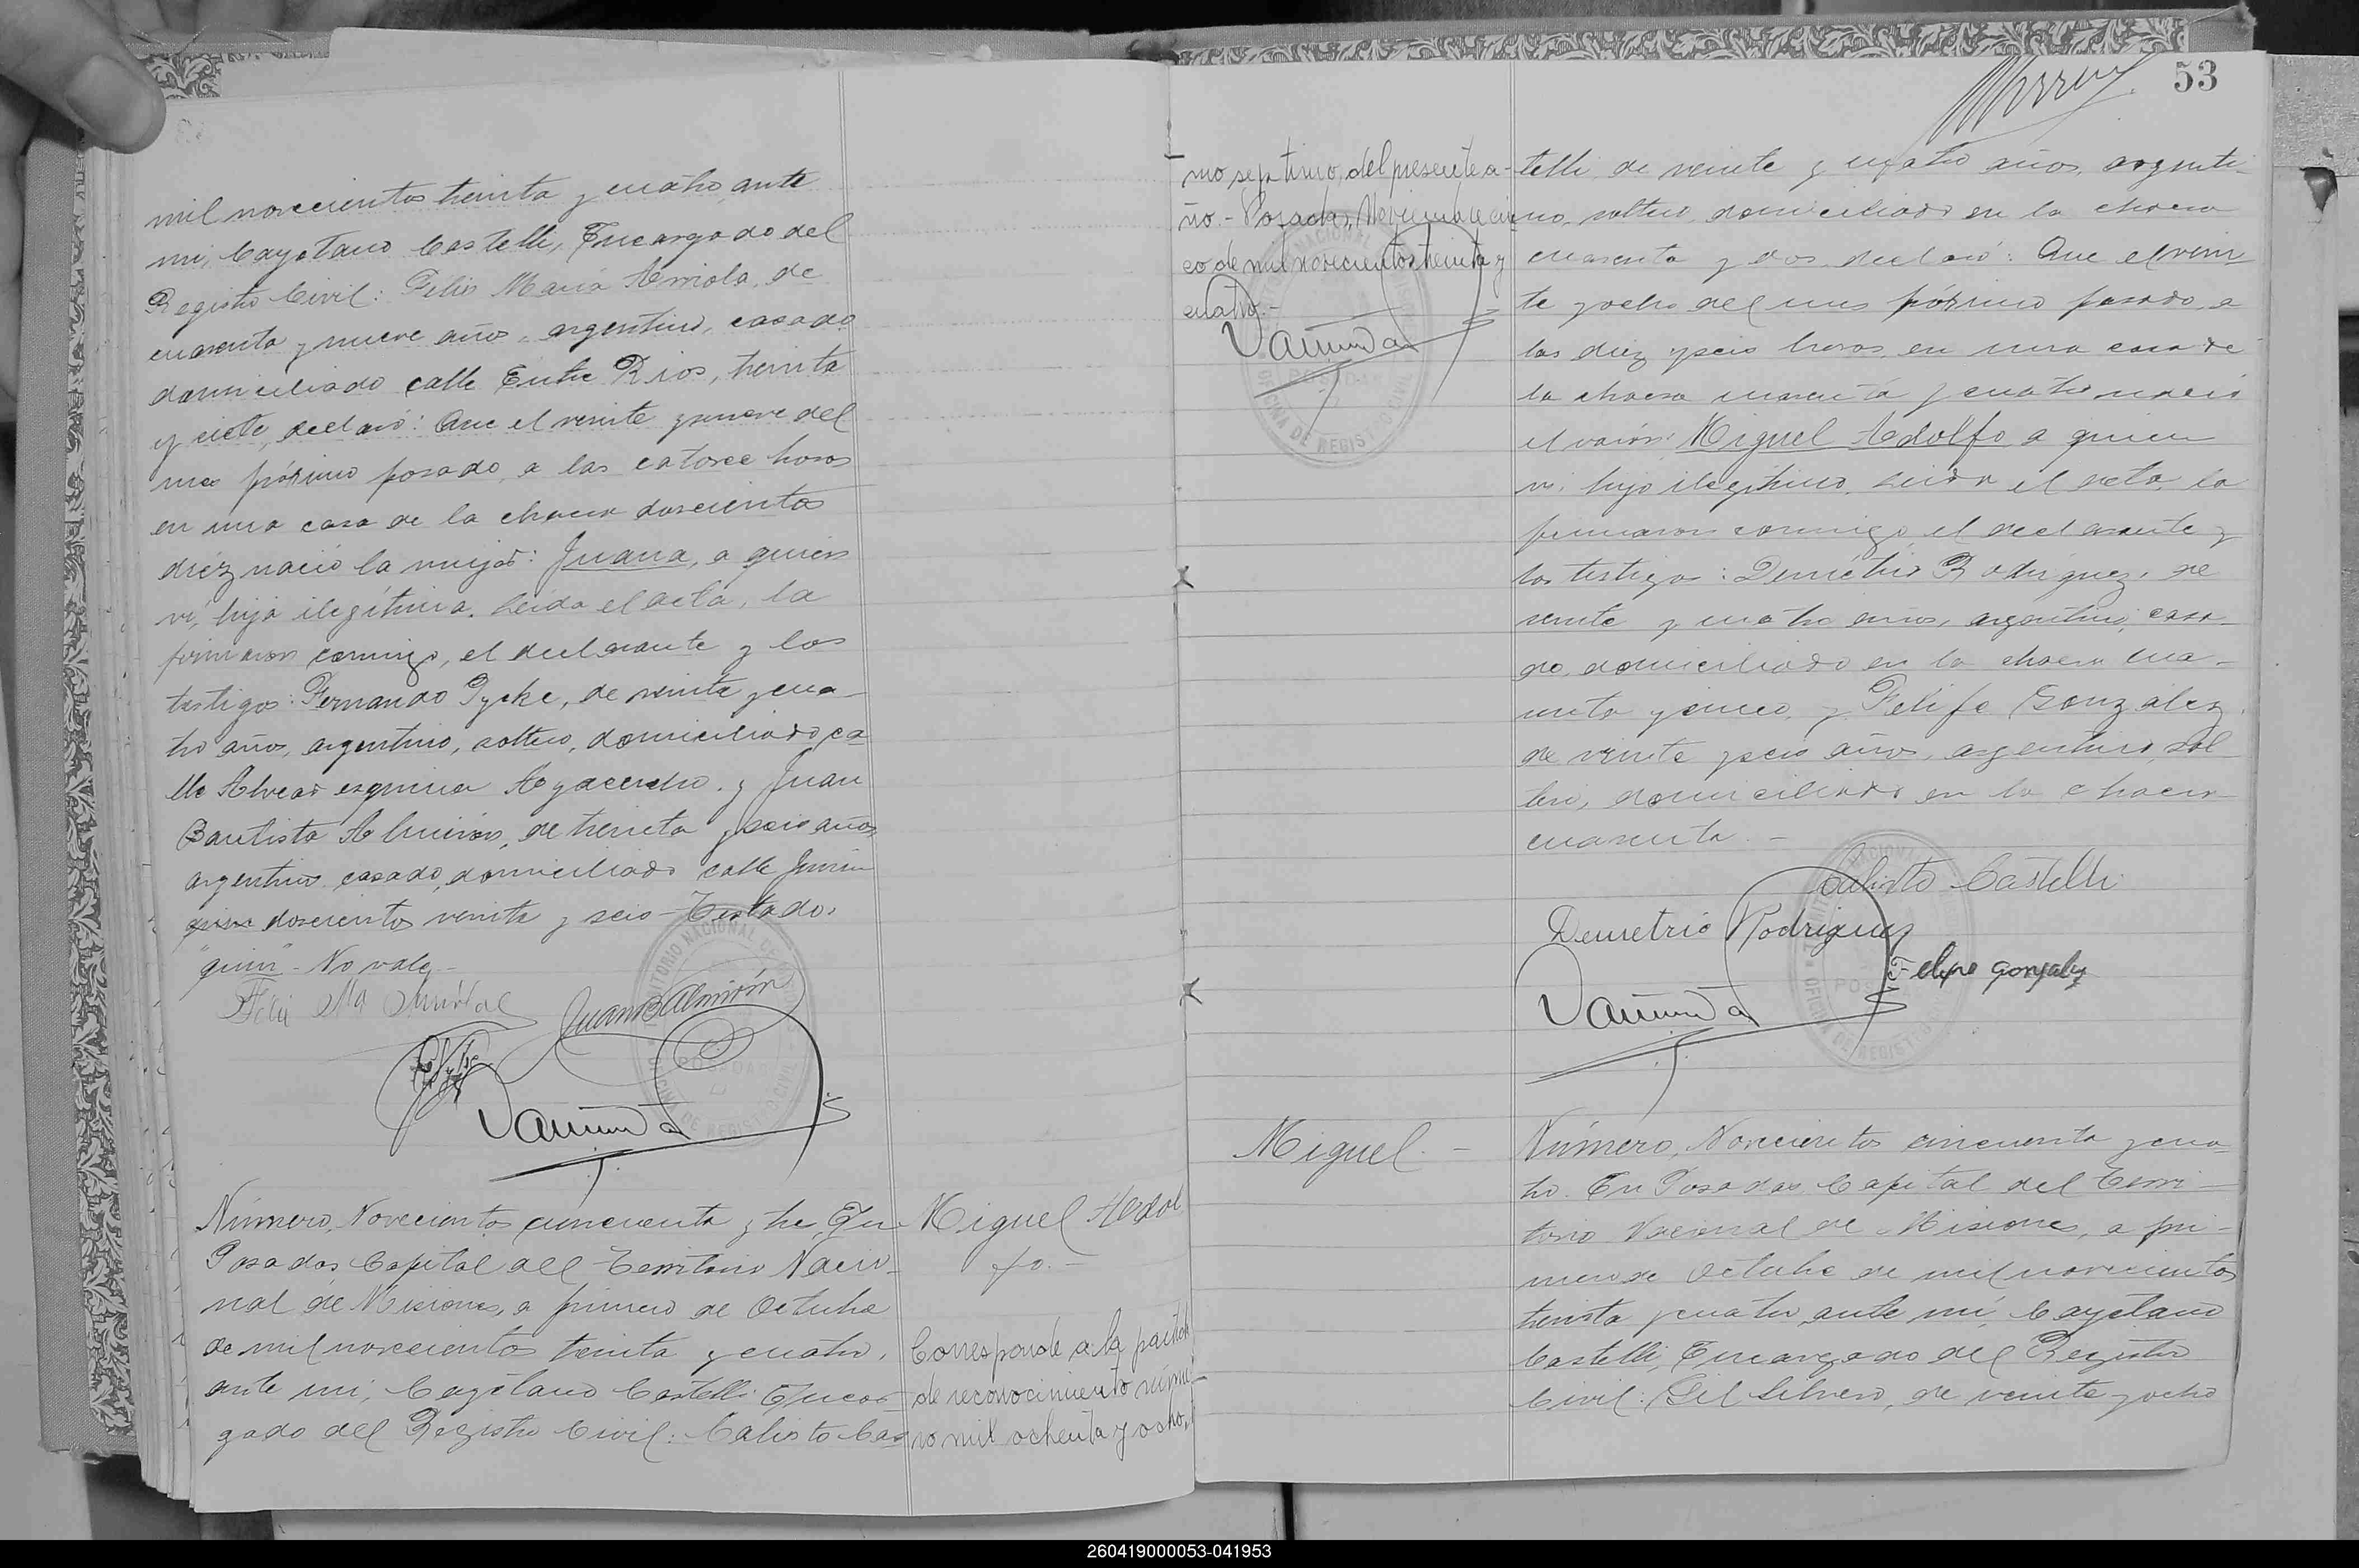 mil novecientos treinta y cuatro, ante
mi, Cayetano Castelli, Encargado del
Registro Civil: Félix María Arriola, de
cuarenta y nueve años, argentino, casado
domiciliado calle Entre Rios, treinta
y siete, declaró: Que el veinte y nueve del
mes próximo pasado, a las catorce horas
en una casa de la chacra doscientos
diéz nació la mujer: Juana, a quien
ví, hija ilegítima. Leida el acta, la
firmaron conmigo, el declarante y los
testigos: Fernando Tycke, de veinte y cua-
tro años, argentino, soltero, domiciliado ca-
lle Alvear esquina Ayacucho, y Juan
Bautista Almirón, de treinta y seis años
argentino, casado, domiciliado calle Junin
quin doscientos veinte y seis - Testado:
"quin" - No vale -
Juan B Almirón
Número, Novecientos cincuenta y tres, En
Posadas Capital del Territorio Nacio-
nal de Misiones, a primero de Octubre
de mil novecientos treinta y cuatro,
ante mi, Cayetano Castelli Encar-
gado del Registro Civil: Calisto Cas
Miguel Adol
fo. -
Corresponde a la partida
de reconocimiento núme-
ro mil ochenta y ocho,
53
mo septimo, del presente a-
ño. - Posadas, Noviembre cin
co de mil novecientos treinta y
cuatro. -
OFICINA DE REGISTRO CIVIL
telli, de veinte y cuatro años, argenti-
no, soltero, domiciliado en la chacra
cuarenta y dos, declaró: Que el vein
te y ocho del mes próximo pasado, a
las diez y seis horas, en una casa de
la chacra cuarenta y cuatro nació
el varón: Miguel Adolfo a quien
vi, hijo ilegítimo. Leida el acta, la
firmaron conmigo el declarante y
los testigos: Demétrio Rodriguez, de
veinte y cuatro años, argentino, casa-
do, domiciliado en la chacra cua-
renta y cinco, y Felipe González,
de veinte y seis años, argentino, sol
tero, domiciliado en la chacra
cuarenta. -
Calisto Castelli
Demetrio Rodriguez
Felipe gonzalez
Miguel. -
Número, Novecientos cincuenta y cua-
tro. En Posadas Capital del Terri-
torio Nacional de Misiones, a pri-
mero de Octubre de mil novecientos
treinta y cuatro, ante mi, Cayetano
Castelli, Encargado del Registro
Civil: Gil Silvero, de veinte y ocho
260419000053-041953